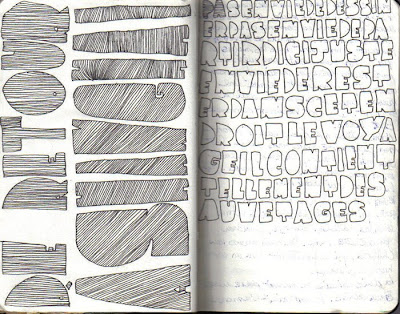 DE RETOUR
PASENVIEDEDESSIN
ERPASENVIEDEPA
RTIRDICIJUSTE
ENVIEDEREST
ERDANSCETEN
DROITLEVOYA
GEILCONTIENT
TELLEMENTDES
AUVETAGES